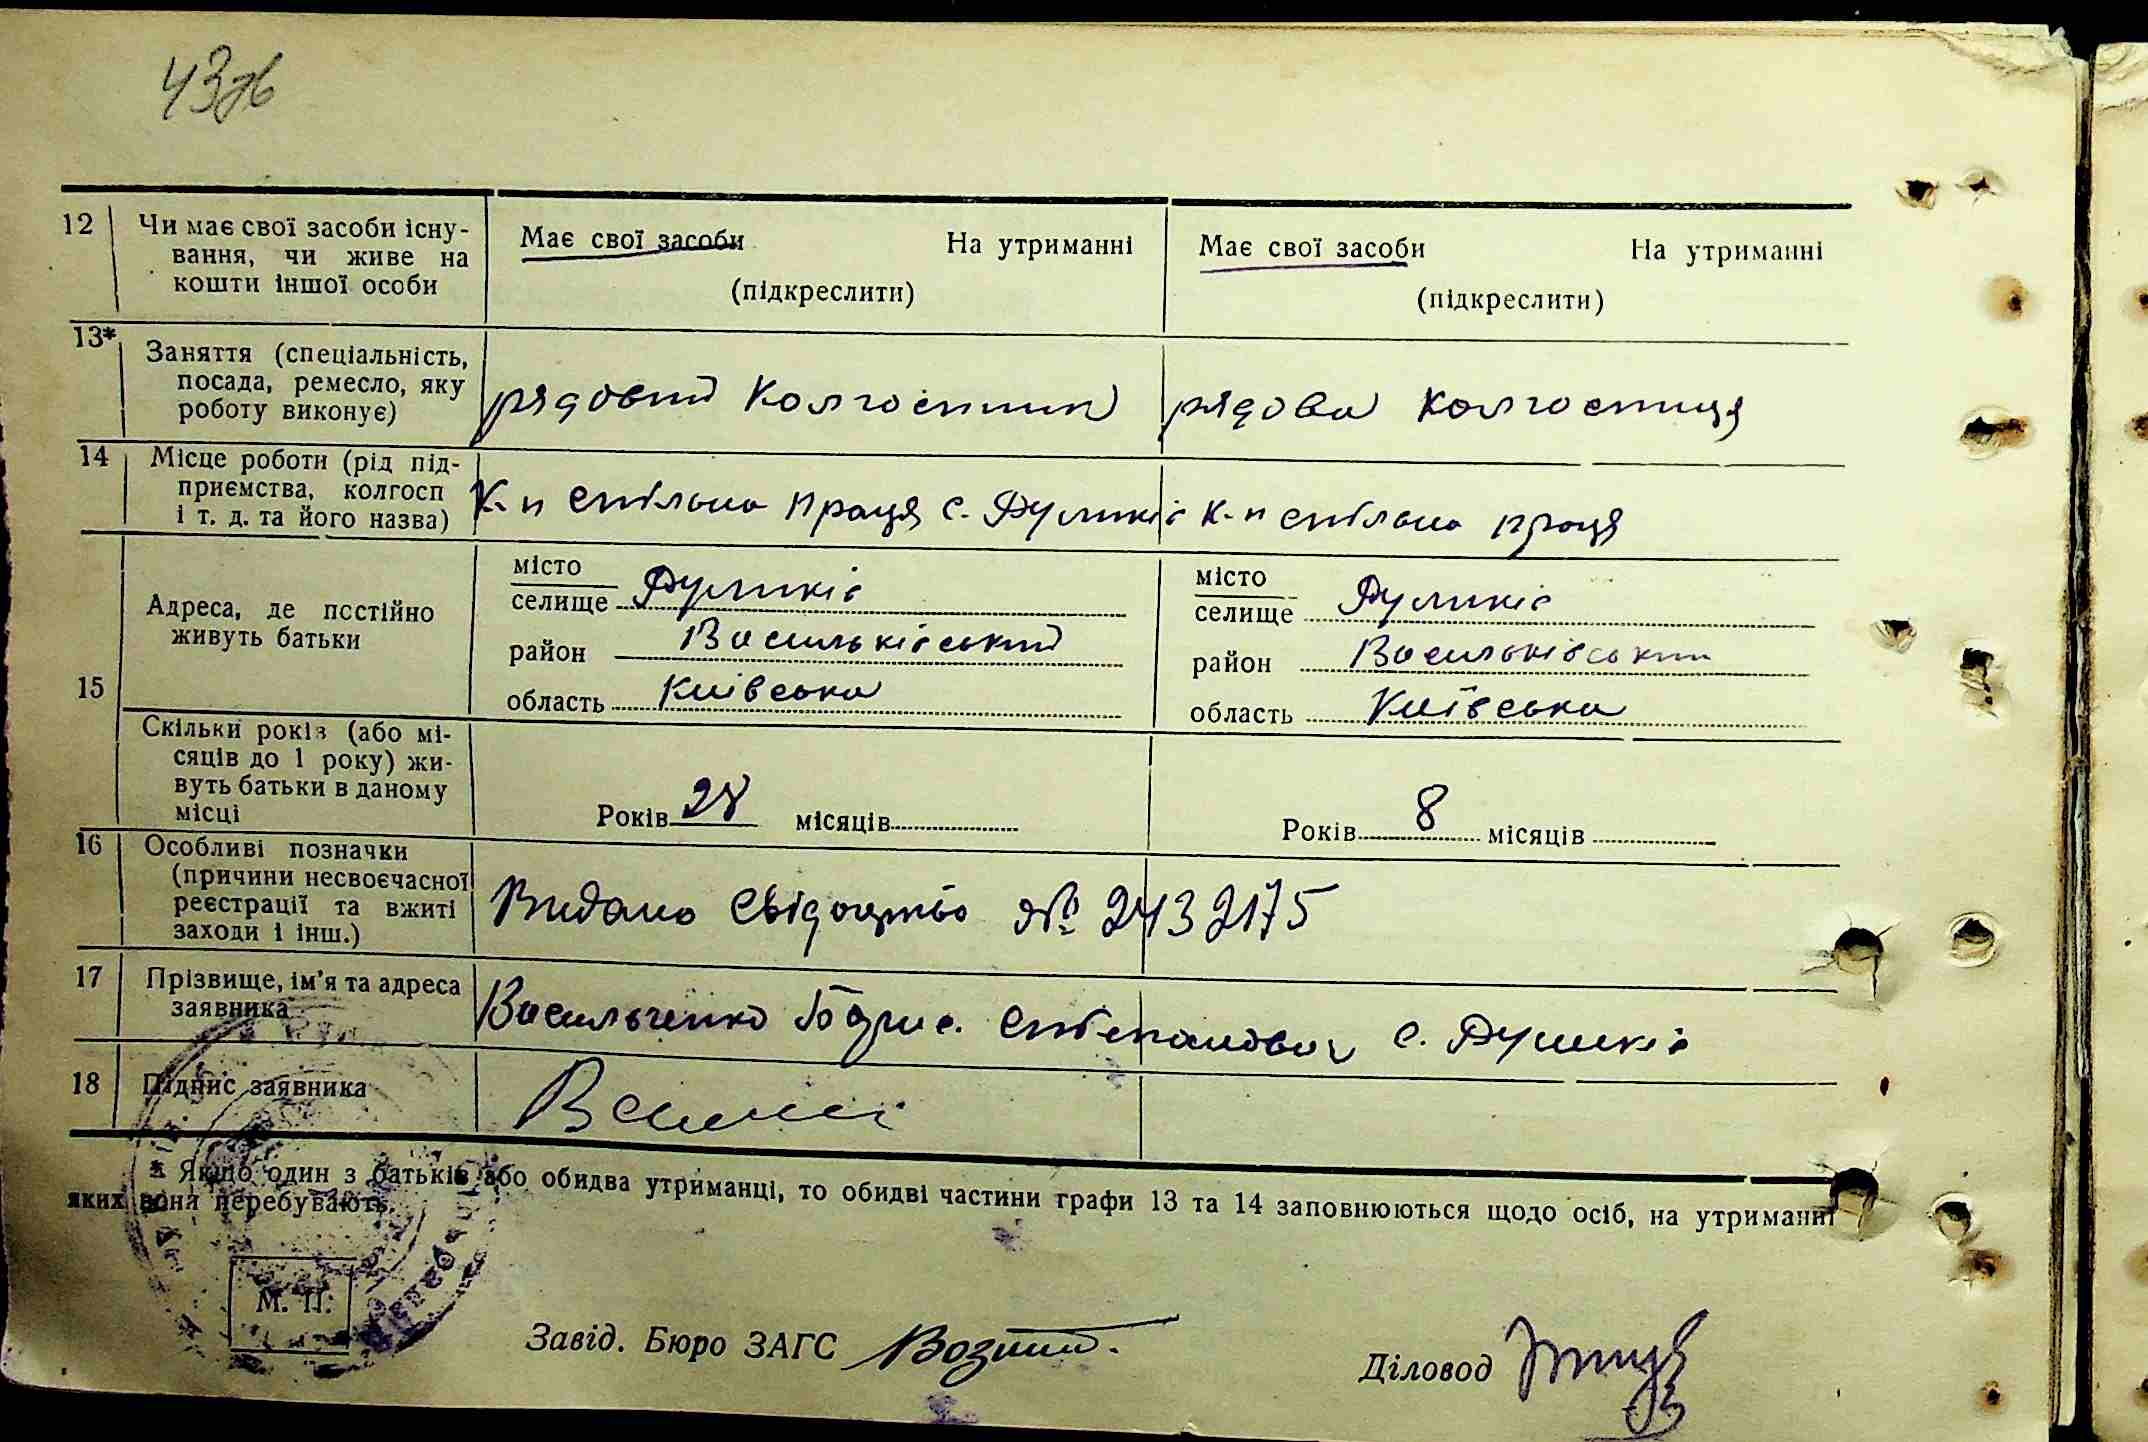 43зв
12 Чи має свої засоби існу-
вання, чи живе на
кошти іншої особи
Має свої засоби На утриманні
(підкреслити)
Має свої засоби На утриманні
(підкреслити)
13* Заняття (спеціальність,
посада, ремесло, яку
роботу виконує)
рядовий колгоспник
рядова колгоспниця
14 Місце роботи (рід під-
приємства, колгосп
і т. д. та його назва)
К-п спільна праця с. Дуликів
К-п спільна праця
15 Адреса, де постійно
живуть батьки
місто
селище Дуликів
район Васильківський
область Київська
місто
селище Дуликів
район Васильківський
область Київська
Скільки років (або мі-
сяців до 1 року) жи-
вуть батьки в даному
місці
Років 28 місяців
Років 8 місяців
16 Особливі позначки
(причини несвоєчасної
реєстрації та вжиті
заходи і інш.)
Видано свідоцтво № 2432175
17 Прізвище, ім'я та адреса
заявника
Васильченко Борис Степанович с. Дуликів
18 Підпис заявника
* Якщо один з батьків або обидва утриманці, то обидві частини графи 13 та 14 заповнюються щодо осіб, на утриманні
яких вони перебувають.
М. П.
Завід. Бюро ЗАГС
Діловод